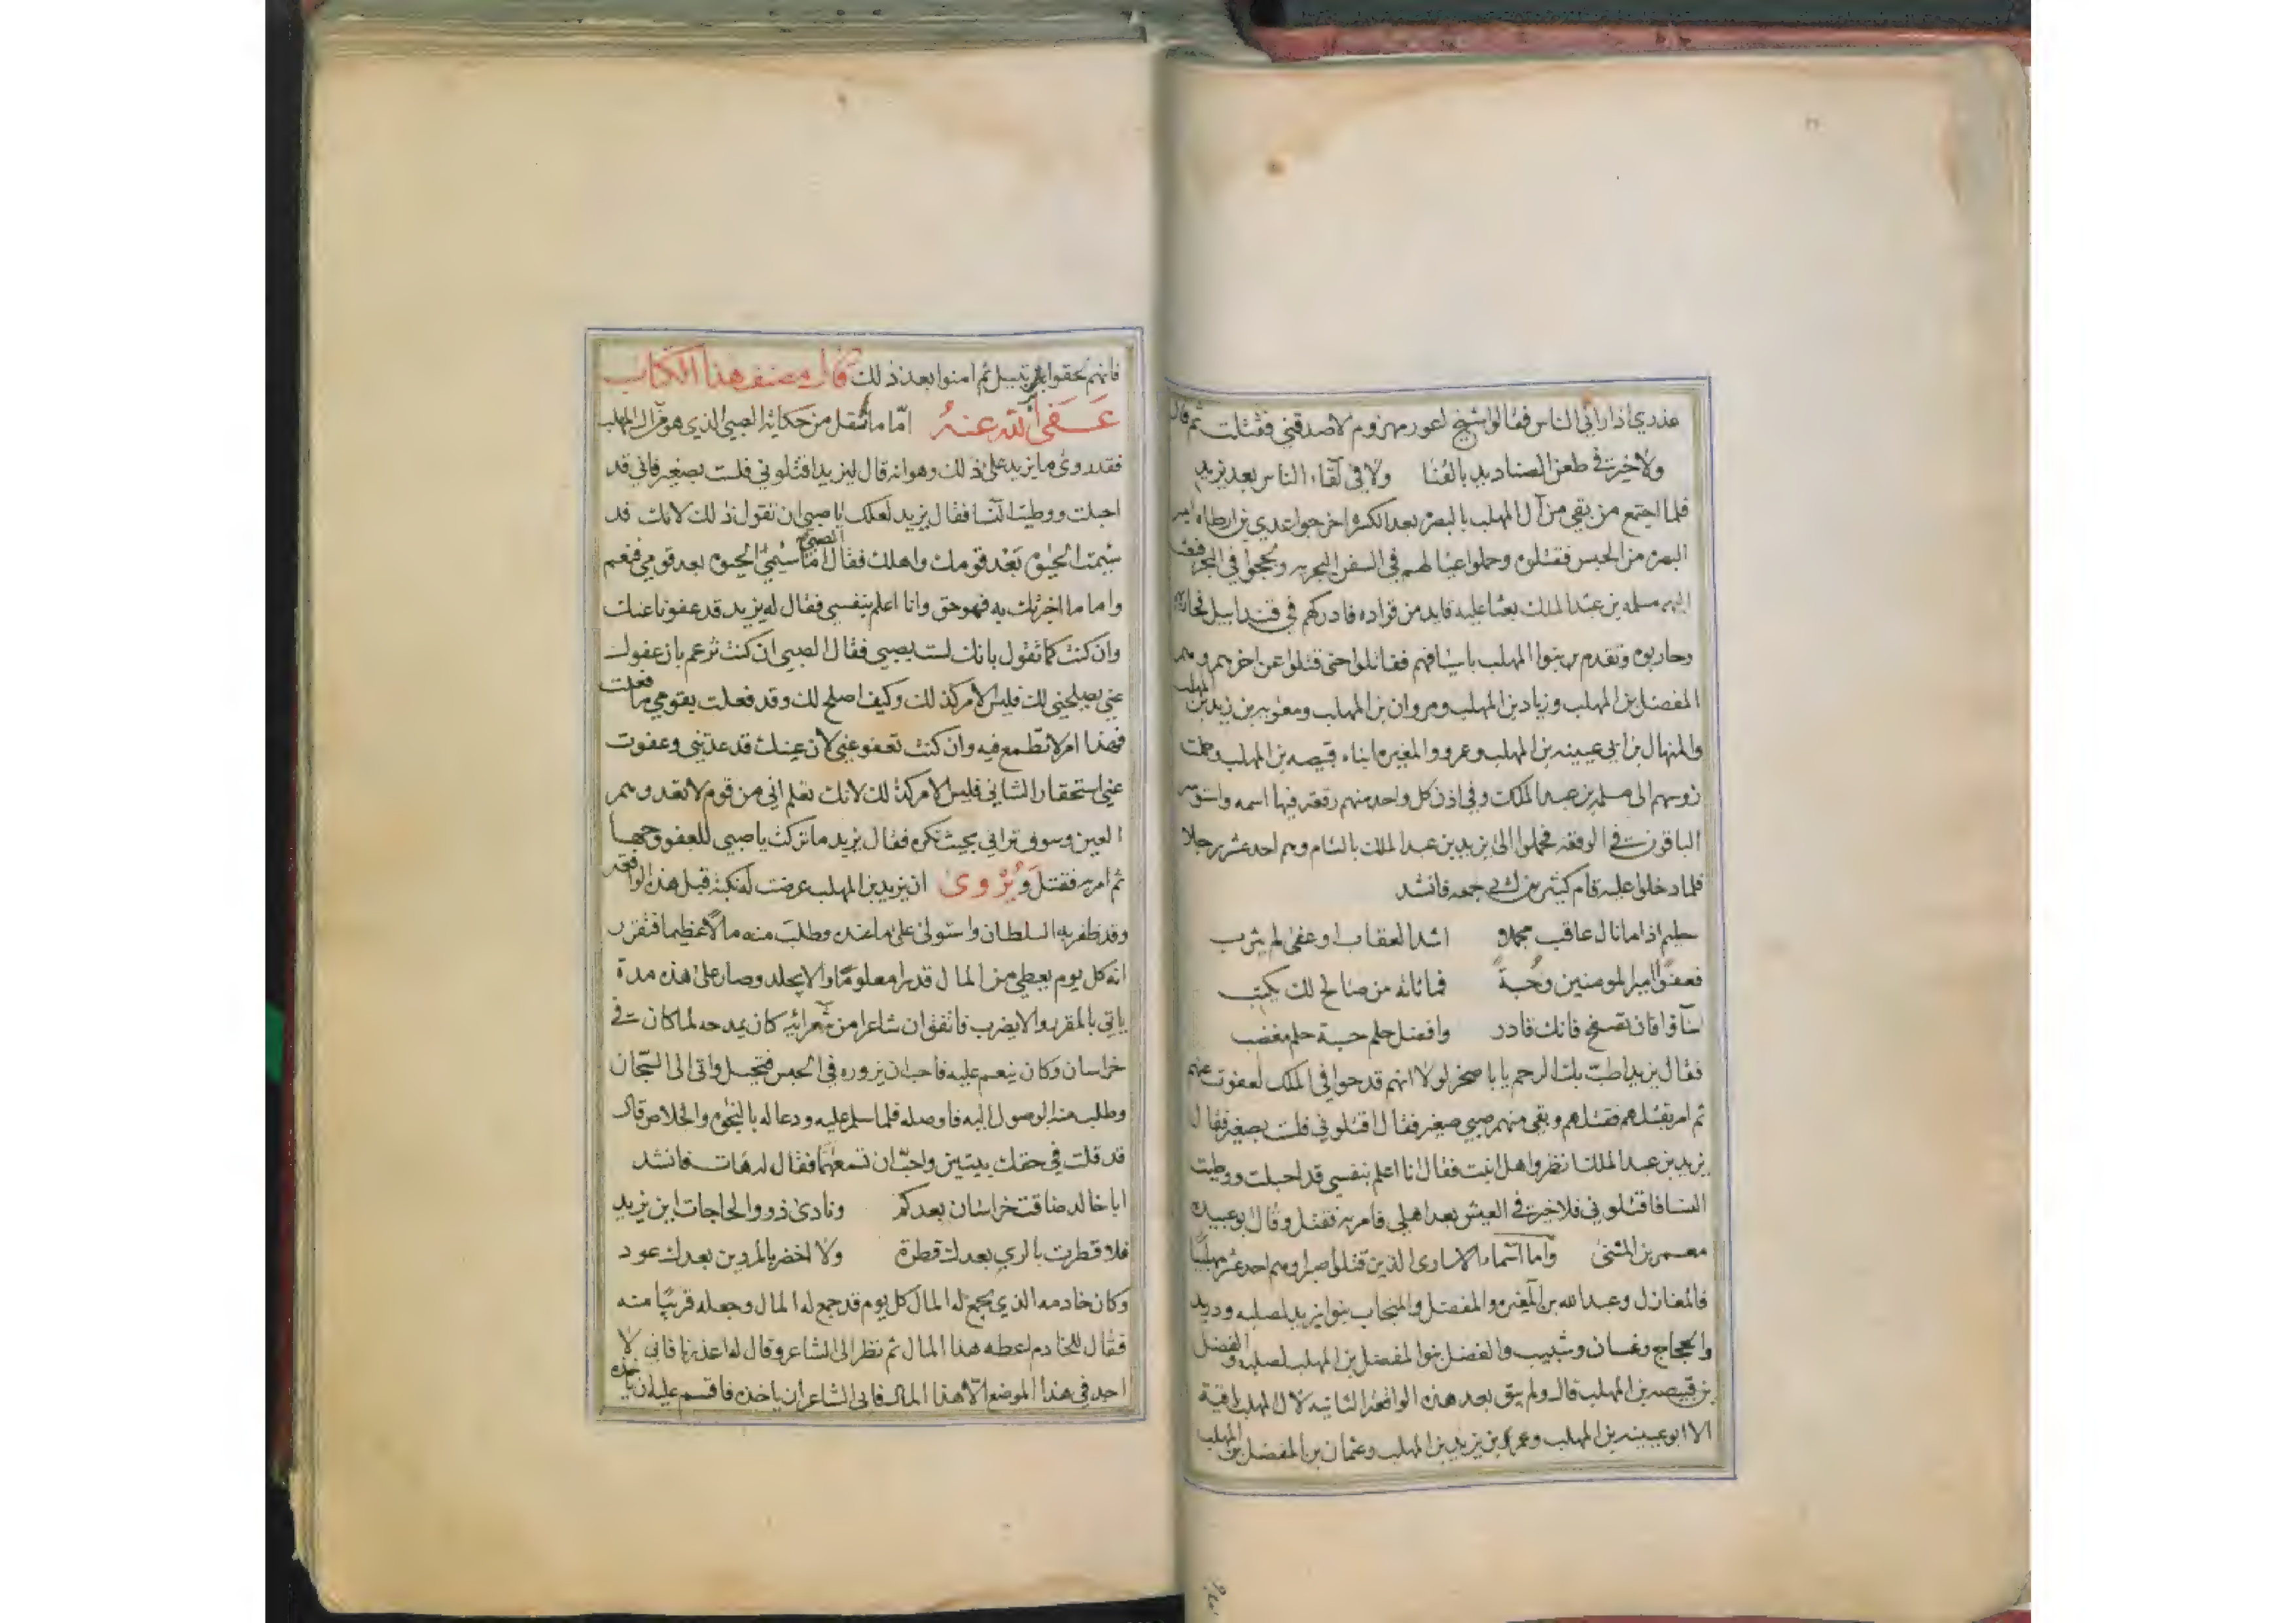 عذري اذا راني الناس فقالوا شيخ اعور مهزوم لا صدقني فقتلت ثم قال
ولا خير في طعن الصناديد بالقنا ولا في لقاء الناس بعد يزيد
فلما اجتمع من بقي من آل المهلب بالبصرة بعد الكسرة اخرجوا عدي بن ارطاة امير
البصرة من الحبس فقتلوه وحملوا عيالهم في السفن البحرية ولججوا في البحر فبعث
اليهم مسلمه بن عبد الملك بعثا عليه قايد من قواده فادركهم في قندابيل
وحاربوه وتقدم بنوا المهلب باسيافهم فقاتلوا حتى قتلوا عن اخرهم وهم
المفضل بن المهلب وزياد بن المهلب ومروان بن المهلب ومعويه بن يزيد بن المهلب
والمنهال بن ابي عيينه بن المهلب وعمرو والمغيره ابناء قبيصه بن المهلب وحملت
روسهم الى مسلمه بن عبد الملك وفي اذن كل واحد منهم رقعة فيها اسمه
الباقون في الوقعه فحملوا الى يزيد بن عبد الملك بالشام وهم احد عشر رجلا
فلما دخلوا عليه قام كثير بن ابي جمعه فانشد
حليم اذا ما نال عاقب مجملا اشد العقاب او عفى لم يثرب
فعفوا امير المومنين وحسبة فما تاته من صالح لك يكتب
اساؤا فان تصفح فانك قادر وافضل حلم حسبة حلم مغضب
فقال يزيد اطت بك الرحم يا با صخر لولا انهم قدحوا في الملك لعفوت عنهم
ثم امر بقتلهم فقتلهم وبقي منهم صبي صغير فقال اقتلوني فلست بصغير فقال
يزيد بن عبد الملك انظروا هل انبت فقال انا اعلم بنفسي قد احبلت ووطيت
النسا فاقتلوني فلا خير في العيش بعد اهلي فامر به فقتل وقال ابو عبيدة
معمر بن المثنى واما اسماء الاسارى الذين قتلوا صبرا وهم احد عشر مهلبيا
فالمعارك وعبد الله بن المغيره والمفضل والمنجاب بنوا يزيد لصلبه ودريد
والحجاج وغسان وشبيب والفضل بنوا المفضل بن المهلب لصلبه والفضل
بن قبيصه بن المهلب قال ولم يبق بعد هذه الواقعة الثانيه لال المهلب باقية
الا ابو عيينه بن المهلب وعمر بن يزيد بن المهلب وعثمان بن المفضل بن المهلب
فانهم لحقوا برتبيل ثم امنوا بعد ذلك قال مصنف هذا الكتاب
عفى الله عنه امّا ما نقل من حكاية الصبي الذي هو من ال المهلب
فقد روى ما يزيد على ذلك وهو انه قال ليزيد اقتلوني فلست بصغير فاني قد
احبلت ووطيت النسا فقال يزيد لعلك يا صبي ان تقول ذلك لانك قد
سيمت الحيوة بعد قومك واهلك فقال الصبي امّا سيمي الحيوة بعد قومي فنعم
واما ما اخبرتك به فهو حق وانا اعلم بنفسي فقال له يزيد قد عفونا عنك
وان كنت كما تقول بانك لست بصبي فقال الصبي ان كنت تزعم بان عفوك
عني يصلحني لك فليس الامر كذلك وكيف اصلح لك وقد فعلت بقومي ما فعلت
فهذا امر لا تطمع فيه وان كنت تعفو عني لان عينك قد عدتني وعفوت
عني استحقارا لشاني فليس الامر كذلك لانك تعلم اني من قوم لا تعدوهم
العين وسوف تراني بحيث تكره فقال يزيد ما تركت يا صبي للعفو وجها
ثم امر به فقتل ويُرْوى ان يزيد بن المهلب عرضت له نكبة قبل هذه الواقعة
وقد ظفر به السلطان واستولى على ما عنده وطلب منه مالا عظيما فتقرر
انه كل يوم يعطي من المال قدرا معلوما والا يجلد وصار على هذه مدة
ياتي بالمقرر والا يضرب فاتفق ان شاعرا من شعرائه كان يمدحه لما كان في
خراسان وكان ينعم عليه فاحب ان يزوره في الحبس فتحيل واتى الى السجّان
وطلب منه الوصول اليه فاوصله فلما سلم عليه ودعا له بالنجوة والخلاص قال
قد قلت في حقك بيتين واحبّ ان تسمعهما فقال له هات فانشد
ابا خالد ضاقت خراسان بعدكم ونادى ذوو الحاجات اين يزيد
فلا قطرت بالري بعدك قطرة ولا اخضر بالمروين بعدك عود
وكان خادمه الذي يجمع له المال كل يوم قد جمع له المال وجعله قريبا منه
فقال للخادم اعطه هذا المال ثم نظر الى الشاعر وقال له اعذرنا فاني لا
اجد في هذا الموضع الا هذا المال فابى الشاعر ان ياخذه فاقسم عليه ان ياخذه